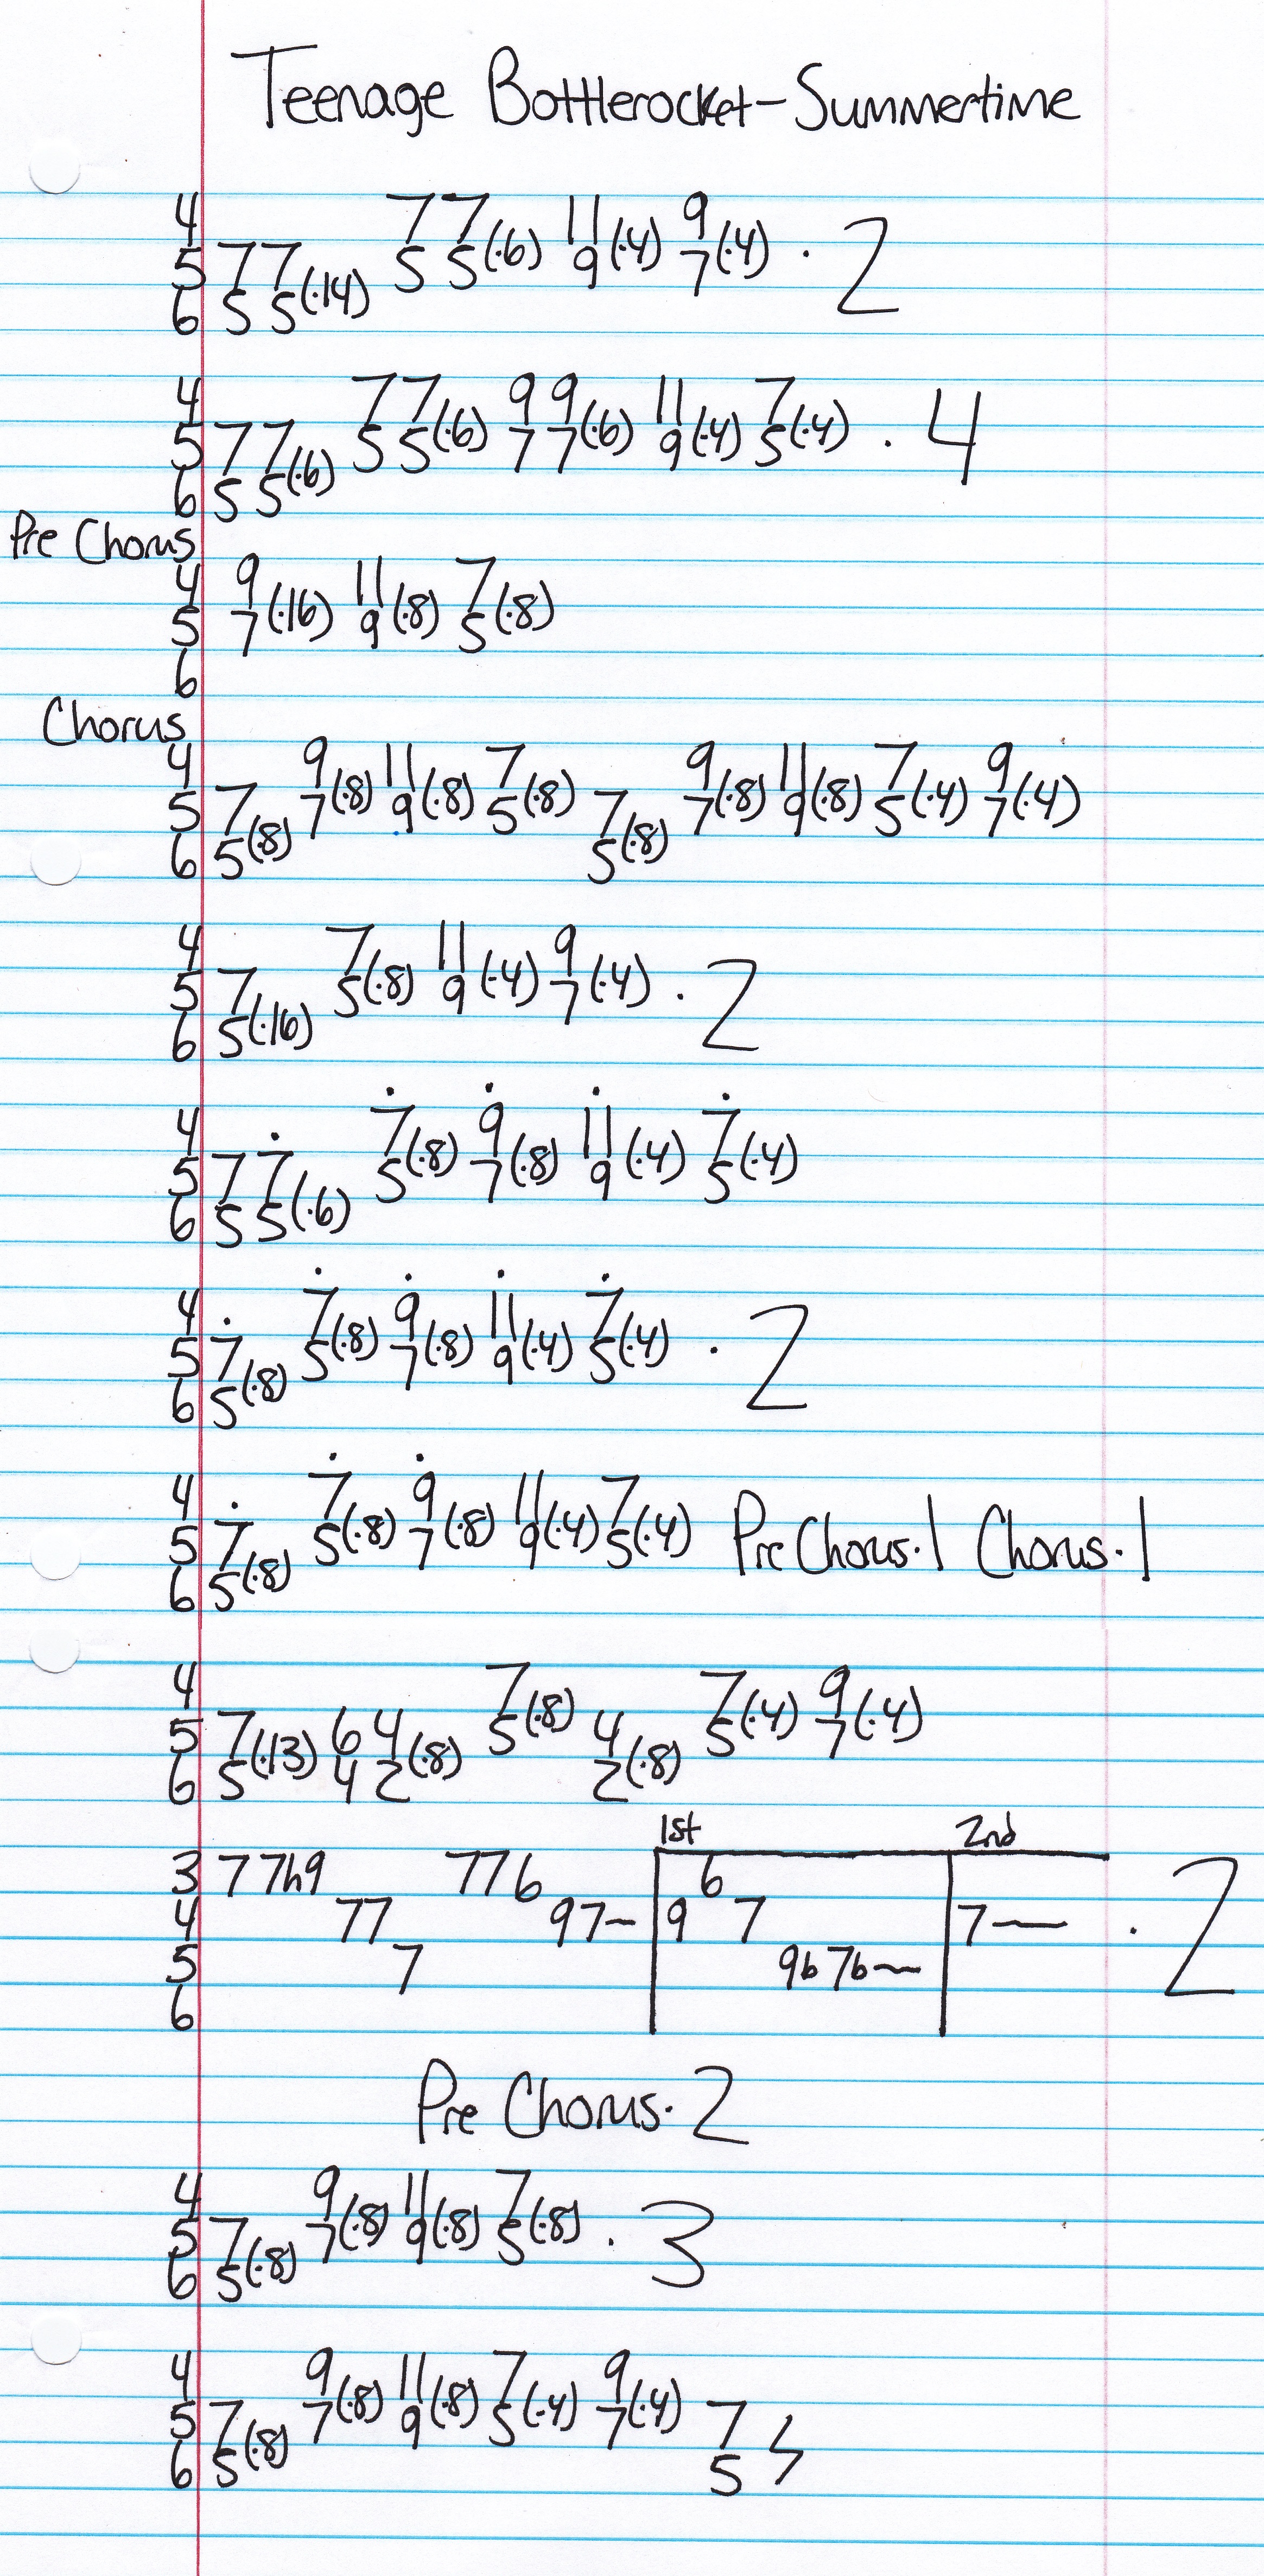 Teenage Bottlerocket-Summertime
4 7 7 11 9
5 7 7 5 5(·6) 9(·4) 7(·4) · 2
6 5 5(·14)
4 7 7 9 9 11 7
5 7 7 5 5(·6) 7 7(·6) 9(·4) 5(·4) · 4
6 5 5(·6)
Pre Chorus
4 9 11 7
5 7(·16) 9(·8) 5(·8)
6
Chorus
4 9 11 7 9 11 7 9
5 7 7(·8) 9(·8) 5(·8) 7 7(·8) 9(·8) 5(·4) 7(·4)
6 5(·8) 5(·8)
4 7 11 9
5 7 5(·8) 9(·4) 7(·4) · 2
6 5(·16)
4 7 9 11 7
5 7 7 5(·8) 7(·8) 9(·4) 5(·4)
6 5 5(·6)
4 7 9 11 7
5 7 5(·8) 7(·8) 9(·4) 5(·4) · 2
6 5(·8)
4 7 9 11 7
5 7 5(·8) 7(·8) 9(·4) 5(·4) Pre Chorus·1 Chorus·1
6 5(·8)
4 7 7 9
5 7 6 4 5(·8) 4 5(·4) 7(·4)
6 5(·13) 4 2(·8) 2(·8)
1st 2nd
3 7 7h9 7 7 6 6
4 7 7 9 7~ 9 7 7~ · 2
5 7 9b 7b~
6
Pre Chorus·2
4 9 11 7
5 7 7(·8) 9(·8) 5(·8) · 3
6 5(·8)
4 9 11 7 9
5 7 7(·8) 9(·8) 5(·4) 7(·4) 7
6 5(·8) 5